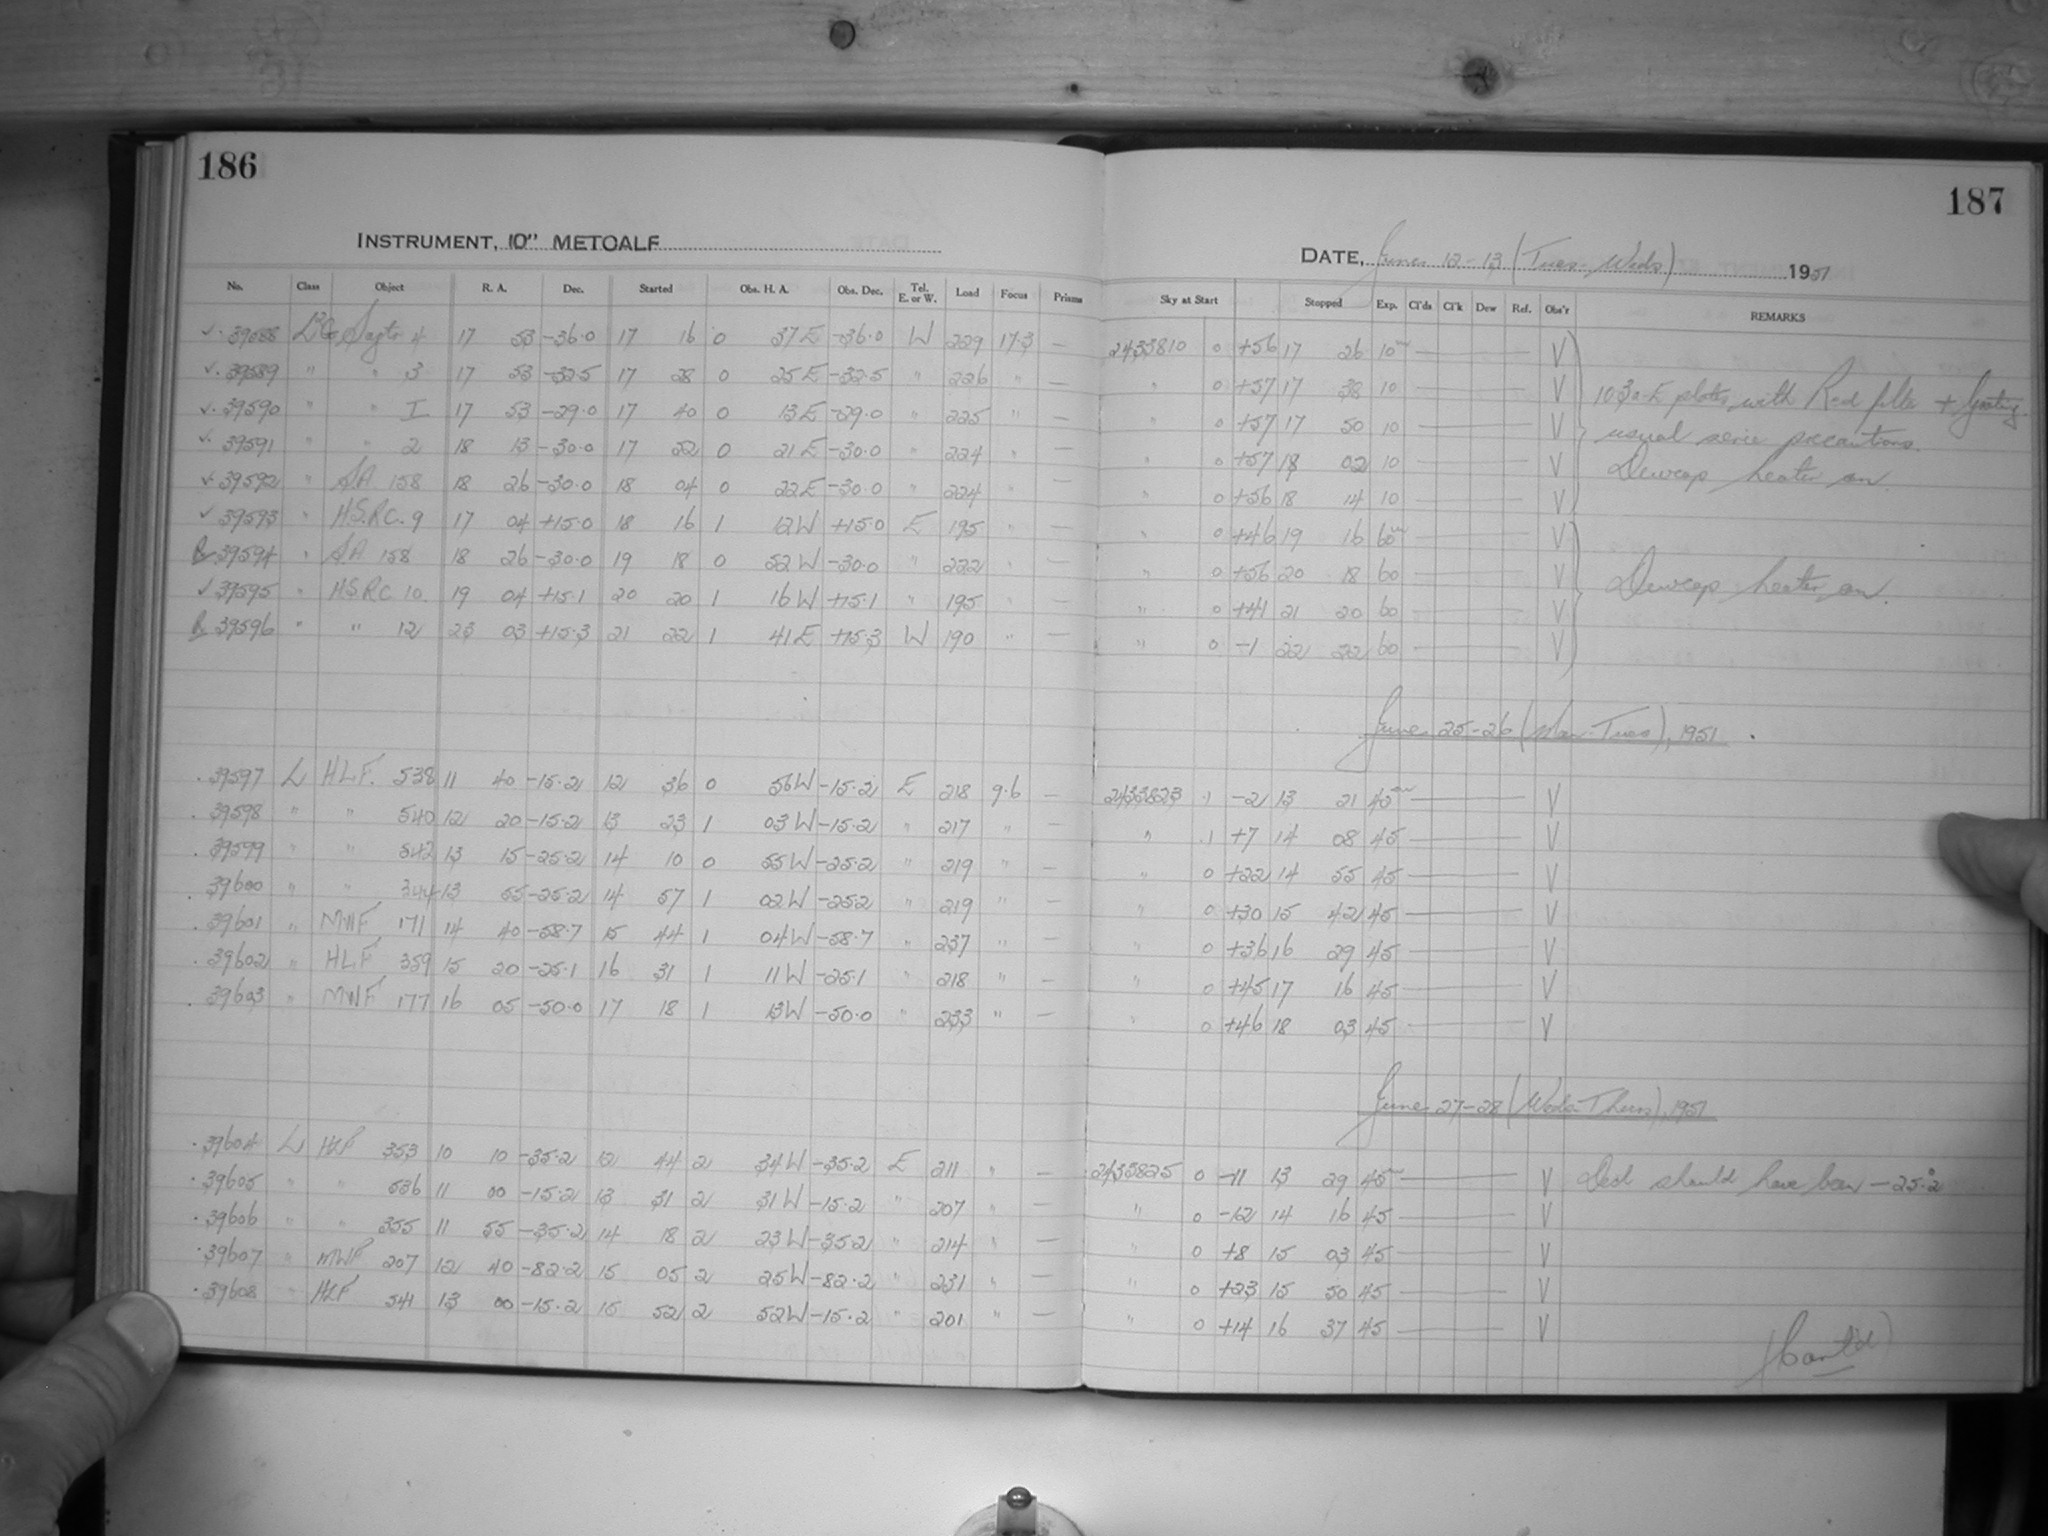 186
187
INSTRUMENT, 10" METCALF
DATE, June 12-13 (Tues-Weds) 1951
No. Class Object R. A. Dec. Started Obs. H. A. Obs. Dec. Tel. E. or W. Load Focus Prisms Sky at Start Stopped Exp. Cl'ds Cl'k Dew Ref. Obs'r REMARKS
✓ 39588 Sagtr 4 17 53 -36.0 17 16 0 37 E -36.0 W 229 17.3 — 2433810 0 +56 17 26 10m V
✓ 39589 " " 3 17 53 -32.5 17 28 0 25 E -32.5 " 226 " — " 0 +57 17 38 10 V 1030-E plates with Red filter
✓ 39590 " " I 17 53 -29.0 17 40 0 13 E -29.0 " 225 " — " 0 +57 17 50 10 V usual precautions.
✓ 39591 " " 2 18 13 -30.0 17 52 0 21 E -30.0 " 224 " — " 0 +57 18 02 10 V Dewcap heater on.
✓ 39592 " SA 158 18 26 -30.0 18 04 0 22 E -30.0 " 224 " — " 0 +56 18 14 10 V
✓ 39593 " H.S.R.C. 9 17 04 +15.0 18 16 1 12 W +15.0 E 195 " — " 0 +46 19 16 60m V
R 39594 " SA 158 18 26 -30.0 19 18 0 52 W -30.0 " 222 " — " 0 +56 20 18 60 V Dewcap heater on.
✓ 39595 " H.S.R.C. 10 19 04 +15.1 20 20 1 16 W +15.1 " 195 " — " 0 +41 21 20 60 V
R 39596 " " 12 23 03 +15.3 21 22 1 41 E +15.3 W 190 " — " 0 -1 22 22 60 V
June 25-26 (Mon-Tues), 1951
. 39597 L H.L.F. 538 11 40 -15.2 12 36 0 56 W -15.2 E 218 9.6 — 2433823 .1 -2 13 21 45m V
. 39598 " " 540 12 20 -15.2 13 23 1 03 W -15.2 " 217 " — " .1 +7 14 08 45 V
. 39599 " " 542 13 15 -25.2 14 10 0 55 W -25.2 " 219 " — " 0 +22 14 55 45 V
. 39600 " " 344 13 55 -25.2 14 57 1 02 W -25.2 " 219 " — " 0 +30 15 42 45 V
. 39601 " MWF 171 14 40 -58.7 15 44 1 04 W -58.7 " 237 " — " 0 +36 16 29 45 V
. 39602 " HLF 359 15 20 -25.1 16 31 1 11 W -25.1 " 218 " — " 0 +45 17 16 45 V
. 39603 " MWF 177 16 05 -50.0 17 18 1 13 W -50.0 " 233 " — " 0 +46 18 03 45 V
June 27-28 (Weds-Thurs), 1951
. 39604 L HLF 353 10 10 -35.2 12 44 2 34 W -35.2 E 211 " — 2433825 0 -11 13 29 45m V Decl should have been -25°.2
. 39605 " " 536 11 00 -15.2 13 31 2 31 W -15.2 " 207 " — " 0 -12 14 16 45 V
. 39606 " " 355 11 55 -35.2 14 18 2 23 W -35.2 " 214 " — " 0 +8 15 03 45 V
. 39607 " MWF 207 12 40 -82.2 15 05 2 25 W -82.2 " 231 " — " 0 +23 15 50 45 V
. 39608 " HLF 541 13 00 -15.2 15 52 2 52 W -15.2 " 201 " — " 0 +14 16 37 45 V
(Cont'd)